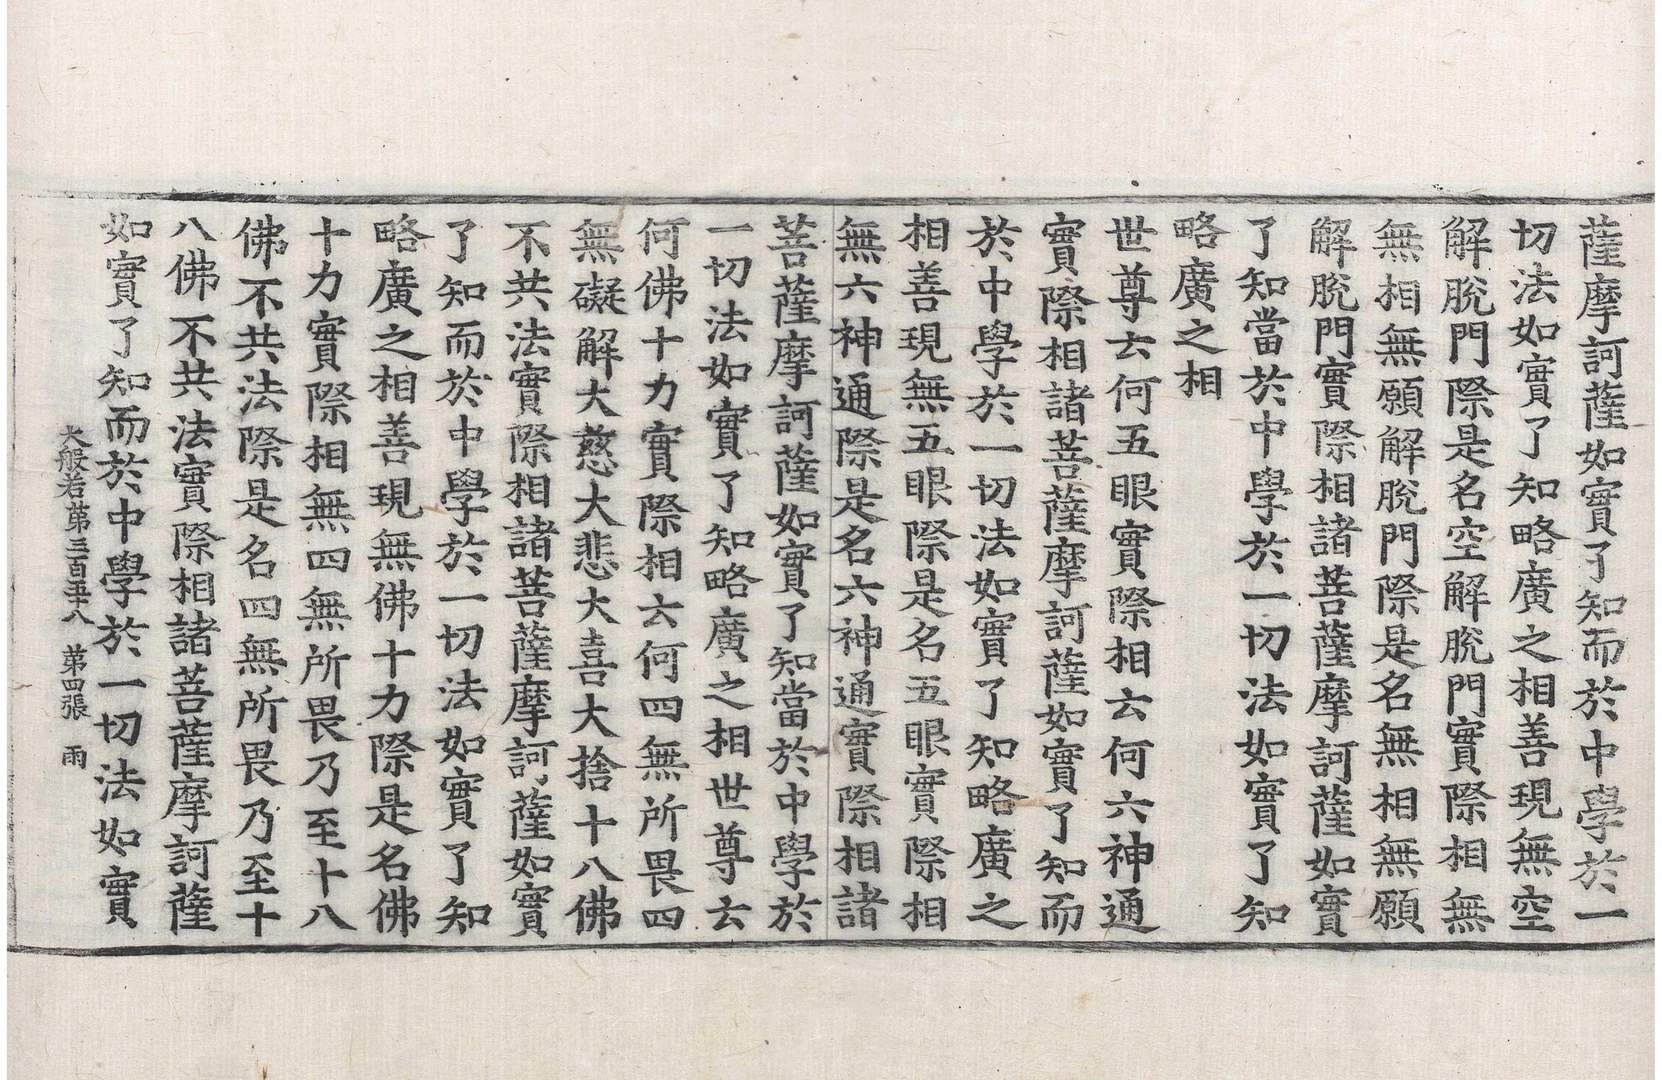 薩摩訶薩如實了知而於中學於一
切法如實了知略廣之相善現無空
解脫門際是名空解脫門實際相無
無相無願解脫門際是名無相無願
解脫門實際相諸菩薩摩訶薩如實
了知當於中學於一切法如實了知
略廣之相
世尊云何五眼實際相云何六神通
實際相諸菩薩摩訶薩如實了知而
於中學於一切法如實了知略廣之
相善現無五眼際是名五眼實際相
無六神通際是名六神通實際相諸
菩薩摩訶薩如實了知當於中學於
一切法如實了知略廣之相世尊云
何佛十力實際相云何四無所畏四
無礙解大慈大悲大喜大捨十八佛
不共法實際相諸菩薩摩訶薩如實
了知而於中學於一切法如實了知
略廣之相善現無佛十力際是名佛
十力實際相無四無所畏乃至十八
佛不共法際是名四無所畏乃至十
八佛不共法實際相諸菩薩摩訶薩
如實了知而於中學於一切法如實
大般若第三百五十八 第四張 雨